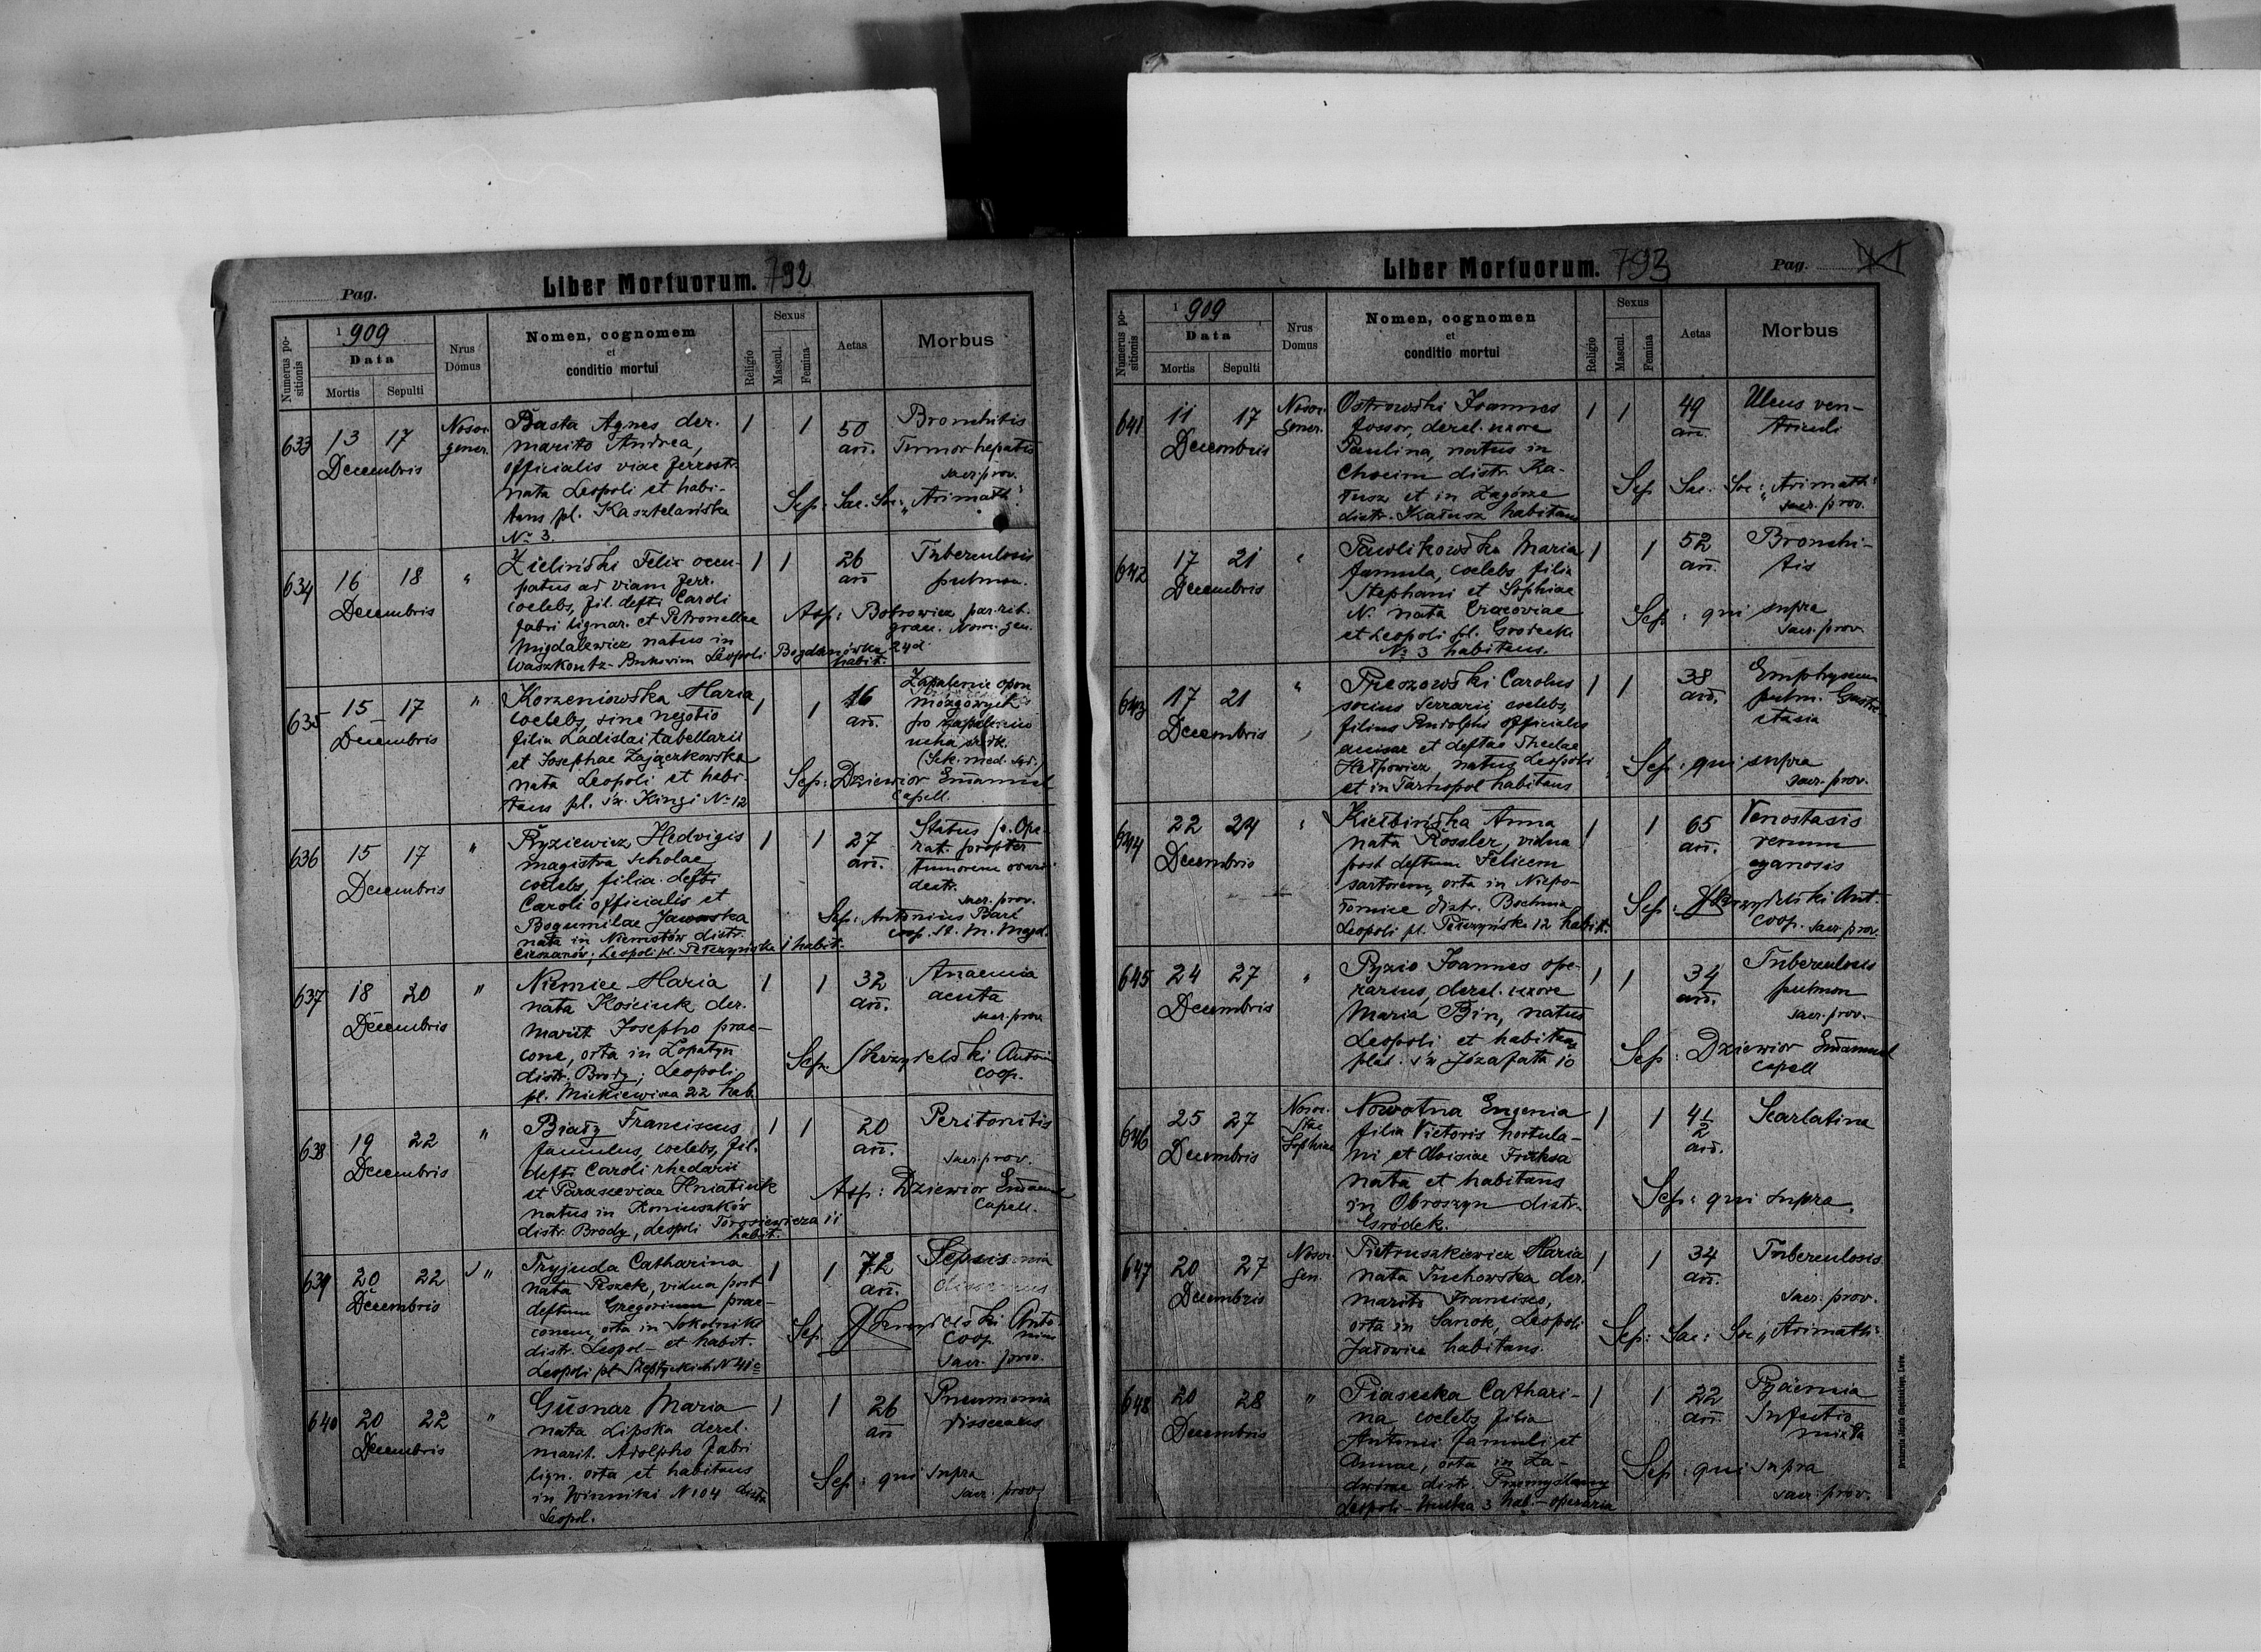 Pag.
Liber Mortuorum. 792
Numerus positionis
1909
Data
Mortis
Sepulti
Nrus Domus
Nomen, cognomem
et
conditio mortui
Religio
Sexus
Mascul.
Femina
Aetas
Morbus
633 13 17 Nosoc. Basta Agnes der. 1 1 50 Bronchitis
Decembris gener. marito Andrea, an. Tumor hepatis
officialis viae ferrostr. sacr. prov.
nata Leopoli et habi- Sep. Sac. Soc. "Arimath"
tans pl. Kasztelańska
No 3.
634 16 18 " Zieliński Felix occu- 1 1 26 Tuberculosis
Decembris patus ad viam ferr. an pulmon.
coelebs, fil. defti Caroli
fabri lignar. et Petronellae
Migdalewicz natus in
Waszkoutz-Bukowina Leopoli Bogdanówka 24d
habit.
635 15 17 " Korzeniowska Maria 1 1 16 Zapalenie opon
Decembris coelebs, sine negotio an. mózgowych
filia Ladislai tabellarii po zapaleniu
et Josephae Zajączkowska ucha środk.
nata Leopoli et habi- Sep: Dziewior Emanuel
tans pl. św. Kingi No 12 Capell.
636 15 17 " Pyziewicz Hedvigis 1 1 27 Status p. Ope-
Decembris magistra scholae an. rat. propter
coelebs, filia defti tumorem ovarii
Caroli officialis et dextr.
Bogumilae Jaworska sacr. prov.
nata in Niemstów distr. Sep: Antonius
Cieszanów; Leopoli pl. Pełczyńska 1 habit. coop. St. M. Magd.
637 18 20 " Niemiec Maria 1 1 32 Anaemia
Decembris nata Kościuk der. an. acuta
marit. Josepho prae- sacr. prov.
cone, orta in Łopatyn Sep. Antoni
distr. Brody; Leopoli coop.
pl. Mickiewicza 22 hab.
638 19 22 " Biały Franciscus 1 1 20 Peritonitis
Decembris famulus, coelebs, fil. an.
defti Caroli rhedarii sacr. prov.
et Parasceviae Hniatiuk Asp: Dziewior Emanuel
natus in Koniuszków Capell.
distr. Brody, Leopoli Torosiewicza 11
habit.
639 20 22 " Tryjuda Catharina 1 1 72 Sepsis
Decembris nata Peszek, vidua post an.
deftum Gregorium prae-
conem, orta in Sokolniki Sep.
distr. Leopol. et habit. coop.
Leopoli pl. Szeptyckich N 41 sacr. prov.
640 20 22 " Gusnar Maria 1 1 26 Pneumonia
Decembris nata Lipska derel. an
marit. Adolpho fabri
lign. orta et habitans Sep: qui supra
in Winniki N 104 distr. sacr. prov.
Leopol.
Liber Mortuorum. 793
Pag.
Numerus positionis
1909
Data
Mortis
Sepulti
Nrus Domus
Nomen, cognomen
et
conditio mortui
Religio
Sexus
Mascul.
Femina
Aetas
Morbus
641 11 17 Nosoc. Ostrowski Joannes 1 1 49 Ulcus ven-
Decembris gener. fossor, derel. uxore an. triculi
Paulina, natus in
Chocim distr. Ka- Sep. Sac. Soc: "Arimath"
łusz et in Zagórze sacr. prov.
distr. Kałusz habitans
642 17 21 " Pawlikowska Maria 1 1 52 Bronchi-
Decembris famula, coelebs filia an. tis
Stephani et Sophiae
N. nata Cracoviae Sep: qui supra
et Leopoli pl. Grodecka sacr. prov.
No 3 habitans.
643 17 21 " Preszowski Carolus 1 1 38 Emphysema
Decembris socius serrarii, coelebs, an. pulm.
filius Rudolphi officialis
et deftae Theclae
natus Leopoli Sep: qui supra
et in Tarnopol habitans sacr. prov.
644 22 24 " Kiełbińska Anna 1 1 65 Venostasis
Decembris nata Rössler, vidua an. renum
post deftum Felicem cyanosis
sartorem, orta in Niepo-
łomice distr. Bochnia Sep. Ant.
Leopoli pl. Pełczyńska 12 habit. coop. sacr. prov.
645 24 27 " Pyzio Joannes ope- 1 1 34 Tuberculosis
Decembris rarius, derel. uxore an. pulmon
Maria Bin, natus sacr. prov.
Leopoli et habitans Sep: Dziewior Emanuel
plat. św. Józafata 10 Capell
646 25 27 Nosoc. Nowotna Eugenia 1 1 4 1/2 Scarlatina
Decembris Stae filia Victoris hortula- an.
Sophiae ni et Aloisiae
nata et habitans Sep: qui supra.
in Obroszyn distr.
Gródek.
647 20 27 Nosoc. Pietruszkiewicz Maria 1 1 34 Tuberculosis
Decembris gen. nata Tuchowska der. an.
marito Francisco, sacr. prov.
orta in Sanok, Leopoli Sep: Sac: Soc "Arimath"
Janowica habitans.
648 20 28 " Piasecka Cathari- 1 1 22 Pyaemia
Decembris na coelebs filia an. Infectio
Antonii famuli et mixta
Annae, orta in Za- Sep: qui supra
dwórze distr. Przemyślany sacr. prov.
Leopoli - Wulka 3 hab. - operaria